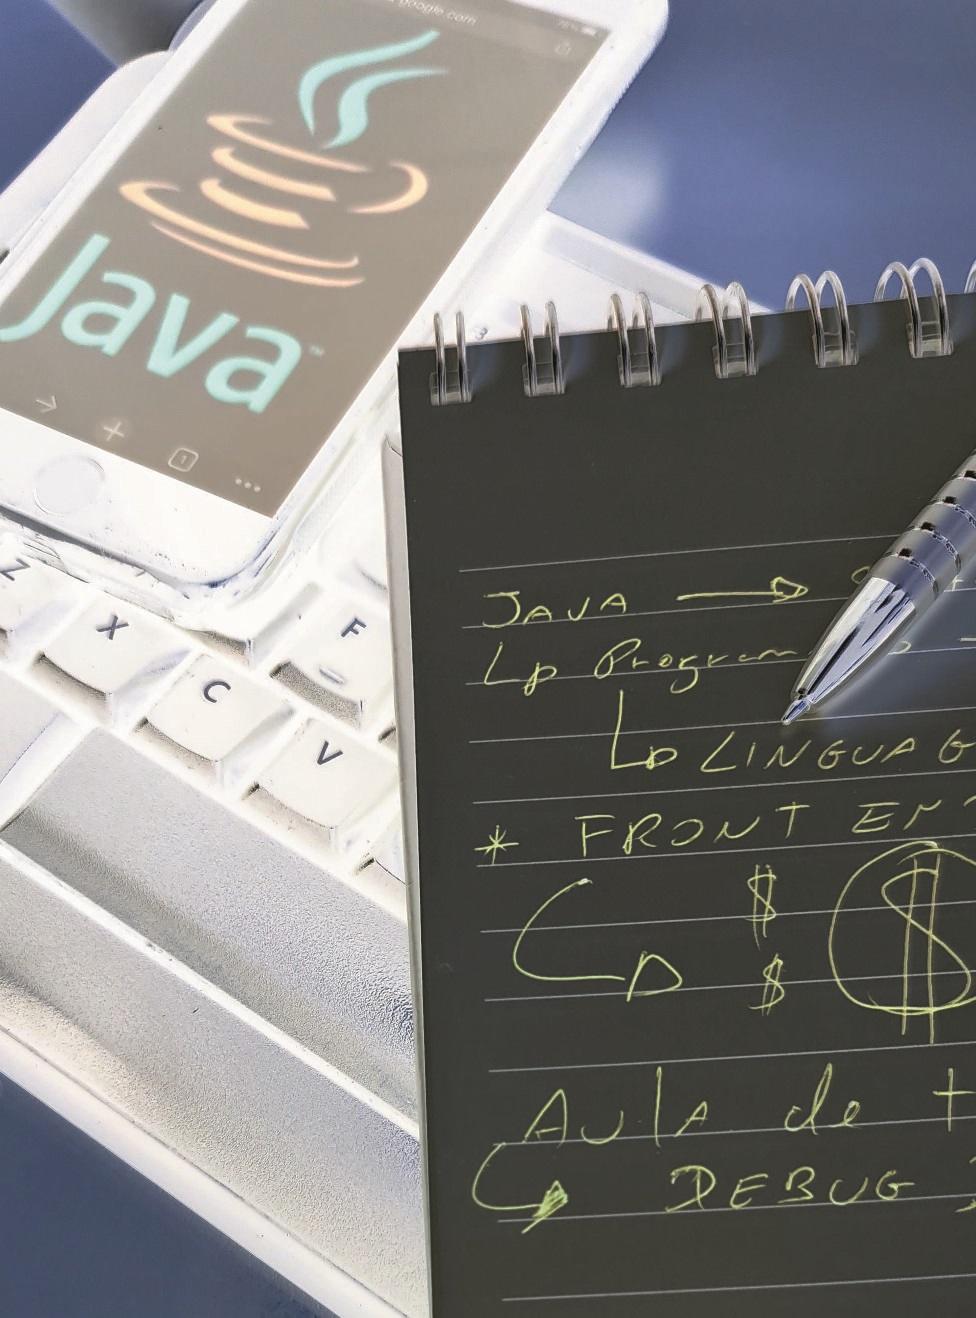 google.com
Java™
1
Z
X
C
V
F
JAVA
Program
LINGUAG
* FRONT EN
$
$ $
Aula de
DEBUG